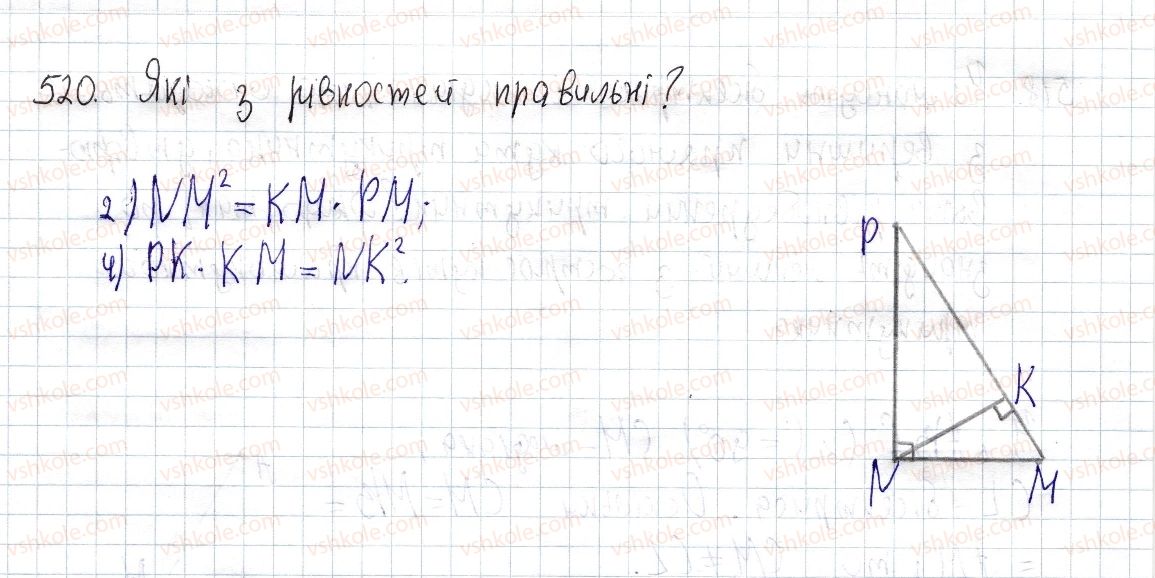 520. Які з рівностей правильні?
2) NM² = KM · PM;
4) PK · KM = NK².
P
K
N
M